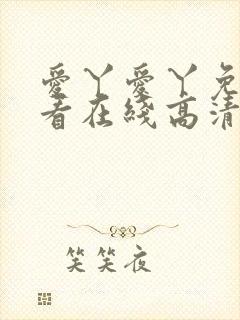 愛丫愛丫免
看在綫高清
笑笑夜